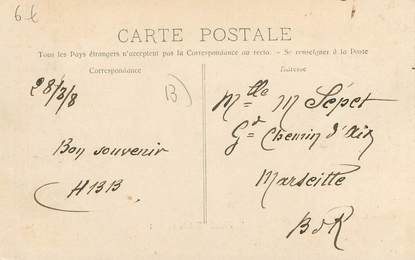 6€
CARTE POSTALE
Tous les Pays étrangers n'acceptent pas la Correspondance au recto. - Se renseigner à la Poste
Correspondance
Adresse
28/3/8
B
Bon souvenir
HBB
Mlle M Sépet
Gd Chemin d'Aix
Marseille
B d R